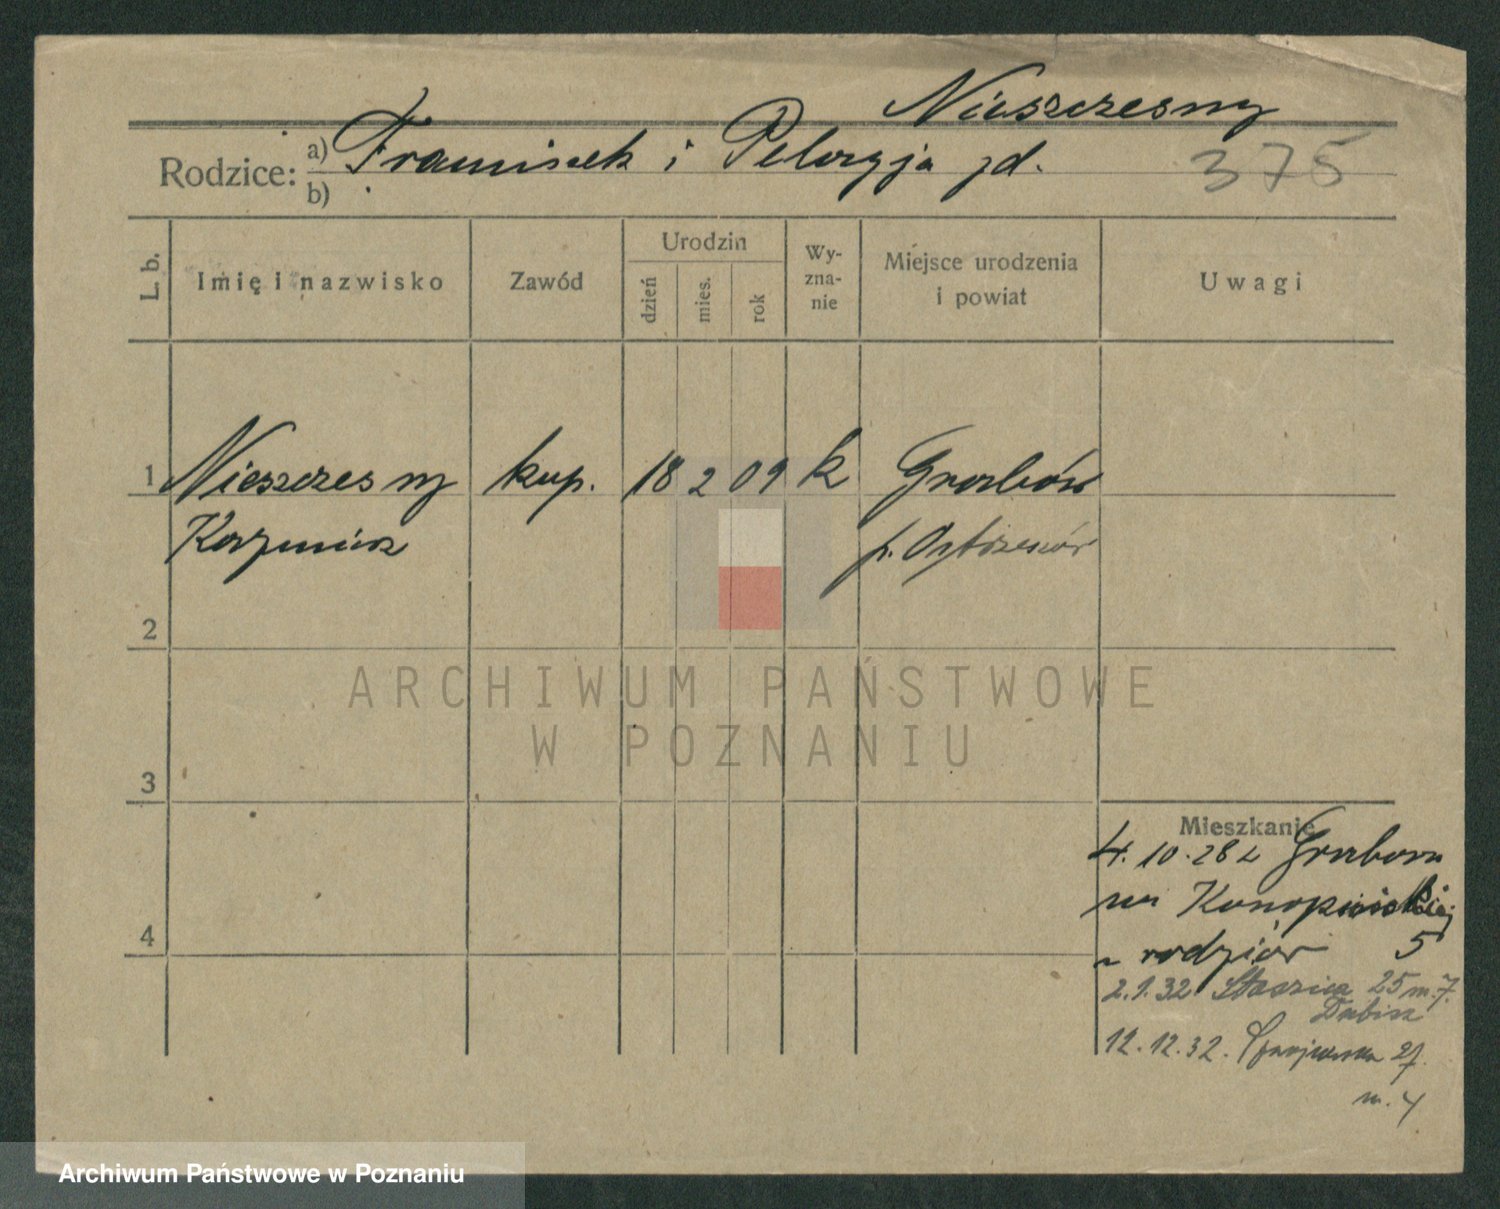 Nieszczesny
Rodzice: a) Franciszek i Pelagja jd.
b)
375
L. b.
Imię i nazwisko
Zawód
Urodzin
dzień
mies.
rok
Wy-
zna-
nie
Miejsce urodzenia
i powiat
Uwagi
1 Nieszczesny kup. 18 2 09 k Grabów
Kazimierz p. Ostrzeszów
2
ARCHIWUM PAŃSTWOWE
W POZNANIU
3
Mieszkanie
4. 10. 28 z Grabowa
4
u rodziców 5
2. 1. 32 Staszica 25 m. 7.
12. 12. 32. 27
m. 4
Archiwum Państwowe w Poznaniu